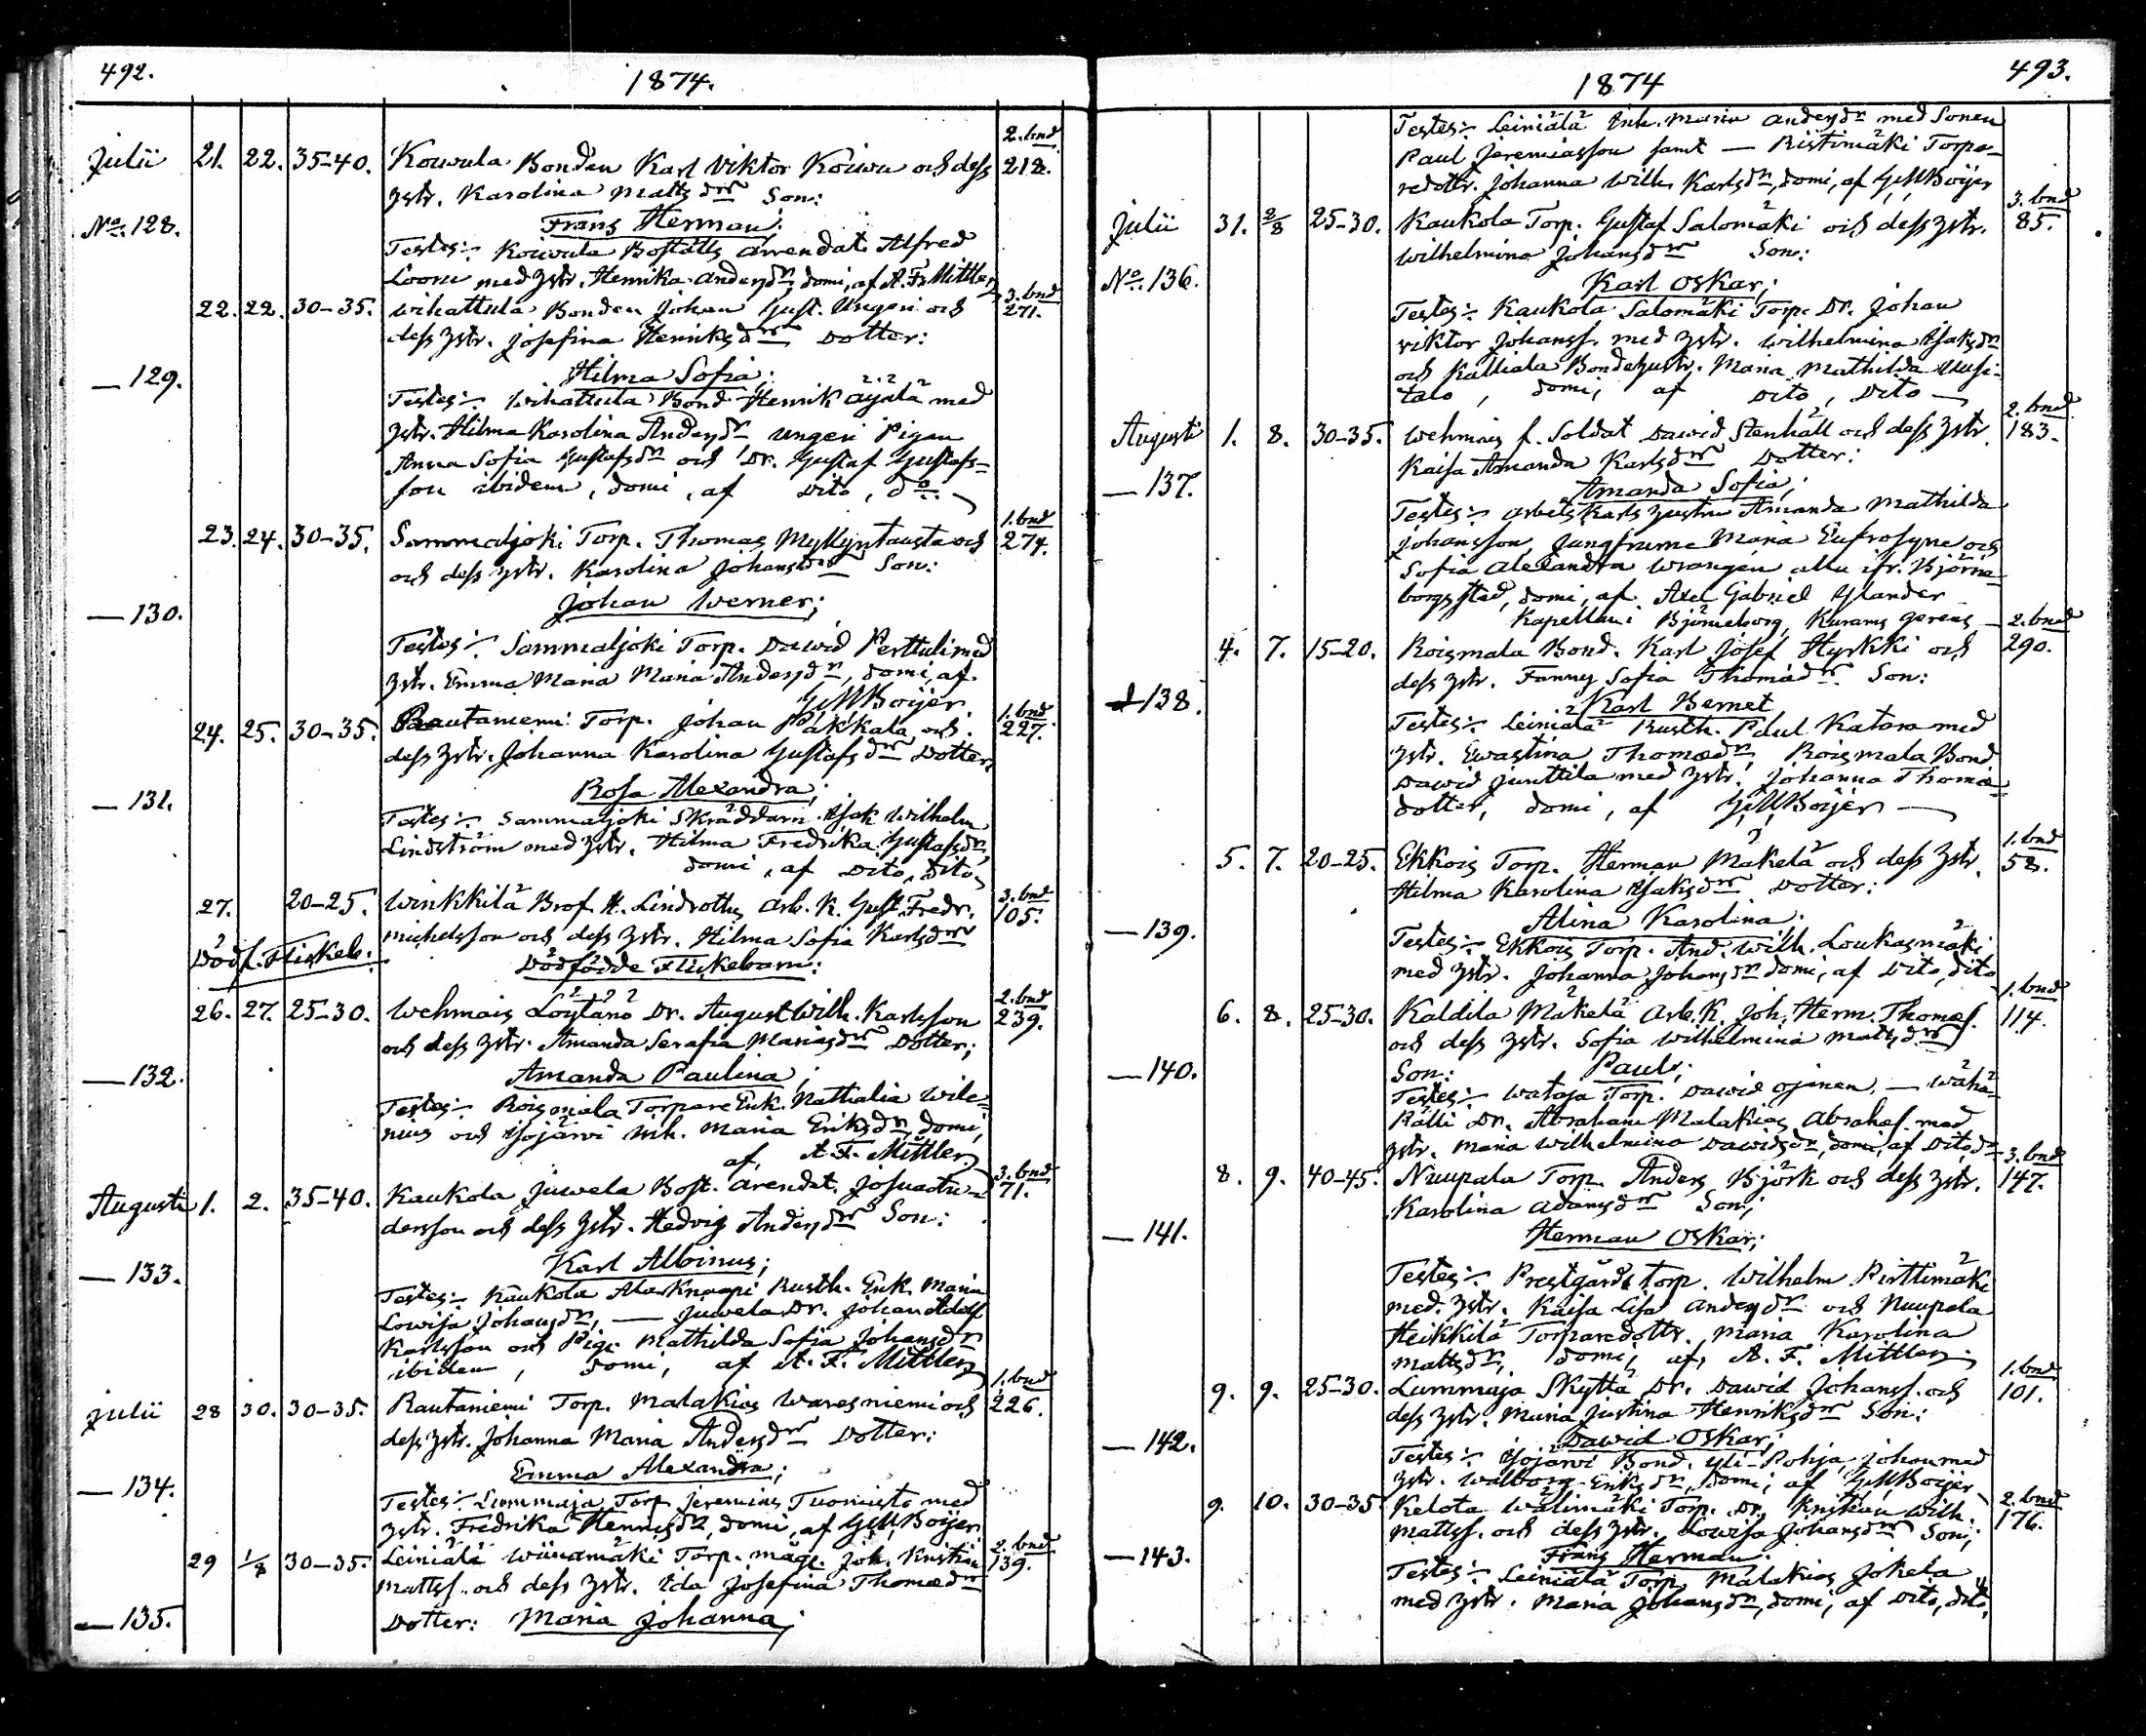 492.
1874.
2. bnd
Julii 21. 22. 35-40. Kouvula Bonden Karl Viktor Kouvu och dess 218.
hstr. Karolina Mattsdr Son:
No. 128. Frans Herman;
Testes:- Kouvula Boställs arrendat. Alfred
Loonu med hstr. Henrika Andersdr, domi, af A. F. Mittler
3. bnd
22. 22. 30-35. Wihattula Bonden Johan Gust. Ungeri och 271.
dess hstr. Josefina Henriksdr Dotter:
— 129. Hilma Sofia;
Testes:- Wihattula Bond. Henrik Äijälä med
hstr. Hilma Karolina Andersdr Ungeri Pigan
Anna Sofia Gustafsdr och Dr. Gustaf Gustafs-
son ibidem, domi, af Dito, do.
1. bnd
23. 24. 30-35. Sammaljoki Torp. Thomas Myllyntausta och 274.
och dess hstr. Karolina Johansdr Son:
— 130. Johan Werner;
Testes:- Sammaljoki Torp. David Perttuli med
hstr. Emma Maria Maria Andersdr, domi, af
G.M. Boijer
1. bnd
24. 25. 30-35. Rautaniemi Torp. Johan Pakkala och 227.
dess hstr. Johanna Karolina Gustafsdr Dotter;
— 131. Rosa Alexandra;
Testes:- Sammaljoki Skräddarn Isak Wilhelm
Lindström med hstr. Hilma Fredrika Gustafsdr,
domi, af Dito, Dito
3. bnd
27. 20-25. Winkkilä Prof. A. Lindroths Arb. K. Gust. Fredr. 105.
Michelsson och dess hstr. Hilma Sofia Karlsdr
Dödf. Flickeb: Dödfödde Flickebarn:
2. bnd
26. 27. 25-30. Wehmais Löytänö Dr. August Wilh. Karlsson 239.
och dess hstr. Amanda Serafia Mariasdr Dotter;
— 132. Amanda Paulina;
Testes:- Roismala Torpare Enk. Nathalia Wile-
nius och Isojärvi Inh. Maria Eriksdr, domi,
af, A. F. Mittler
3. bnd
Augusti 1. 2. 35-40. Kaukola Juwela Bost. Arendat. Josua An- 71.
dersson och dess hstr. Hedvig Andersdr Son:
— 133. Karl Albinus;
Testes:- Kaukola Ala Knaapi Rusth. Enk. Maria
Lowisa Johansdr, — Juwela Dr. Johan Adolf
Karlsson och Pig. Mathilda Sofia Johansdr
ibidem, domi, af A. F. Mittler
1. bnd
Julii 28 30. 30-35. Rautaniemi Torp. Malakias Waresniemi och 226.
dess hstr. Johanna Maria Andersdr Dotter:
— 134. Emma Alexandra;
Testes:- Lummaja Torp. Jeremias Tuomisto med
hstr. Fredrika Henriksdr, domi, af G.M. Boijer
2. bnd
29 1/8 30-35. Leiniälä Wiinamäki Torp. måg. Joh. Kristian 139.
Mattss. och dess hstr. Ida Josefina Thomædr
— 135. Dotter: Maria Johanna;
1874
493.
Testes:- Leiniälä Enk. Maria Andersdr med Sonen
Paul Jeremiasson samt — Ristimäki Torpa-
redottr. Johanna Wilh. Karlsdr, domi, af G.M. Boijer
3. bnd
Julii 31. 2/8 25-30. Kaukola Torp. Gustaf Salomäki och dess hstr. 85.
Wilhelmina Johansdr Son:
No. 136. Karl Oskar;
Testes:- Kaukola Salomäki Torp. Dr. Johan
Viktor Johanss. med hstr. Wilhelmina Isaksdr
och Kalliala Bondehustr. Maria Mathilda Uusi-
talo, domi, af Dito, Dito —
2. bnd
Augusti 1. 8. 30-35. Wehmais f. Soldat David Stenhäll och dess hstr. 183.
Kaisa Amanda Karlsdr Dotter:
— 137. Amanda Sofia;
Testes:- Arbetskarls hustru Amanda Mathilda
Johansson, Jungfrurne Maria Eufrosyne och
Sofia Alexandra Wrangén alla ifr. Björne-
borgs stad, domi, af Axel Gabriel Ylander
Kapellan i Björneborg, Kurams gerens —
2. bnd
4. 7. 15-20. Roismala Bond. Karl Josef Hyrkki och 290.
dess hstr. Fanny Sofia Thomädr. Son:
— 138. Karl Bernet
Testes:- Leiniälä Rusth. Paul Katara med
hstr. Ewastina Thomædr, Roismala Bond.
David Junttila med hstr. Johanna Thomæ-
dotter, domi, af G.M. Boijer —
1. bnd
5. 7. 20-25. Ekkois Torp. Herman Mäkelä och dess hstr. 58.
Hilma Karolina Isaksdr Dotter:
— 139. Alina Karolina;
Testes:- Ekkois Torp. And. Wilh. Loukasmäki
med hstr. Johanna Johansdr domi, af Dito, dito
1. bnd
6. 8. 25-30. Kaldila Mäkelä Arb. K. Joh. Herm. Thomas. 114.
och dess hstr. Sofia Wilhelmina Mattsdr
— 140. Son: Paul;
Testes:- Wataja Torp. David Ojanen, — Wähä-
Rälli Dr. Abraham Malakias Abrahas. med
hstr. Maria Wilhelmina Davidsdr, domi, af Dito, do
3. bnd
8. 9. 40-45. Nuupala Torp. Anders Björk och dess hstr. 147.
Karolina Adamsdr Son;
— 141. Herman Oskar;
Testes:- Prestgårds torp. Wilhelm Pirttimäki
med. hstr. Kaisa Lisa Andersdr och Nuupala
Heikkilä Torparedottr. Maria Karolina
Mattsdr, domi, af, A. F. Mittler
1. bnd
9. 9. 25-30. Lummaja Skyttä Dr. David Johanss. och 101.
dess hstr. Maria Justina Henriksdr Son:
— 142. David Oskar;
Testes:- Isojärvi Bond. Yli-Pohja Johan med
hstr. Walborg Eriksdr, domi, af G.M. Boijer
2. bnd
9. 10. 30-35 Kelota Wälimäki Torp. Dr. Kristian Wilh. 176.
Mattss. och dess hstr. Lowisa Johansdr Son;
— 143. Frans Herman;
Testes:- Leiniälä Torp. Malakias Jokela
med hstr. Maria Johansdr, domi, af Dito, dito,